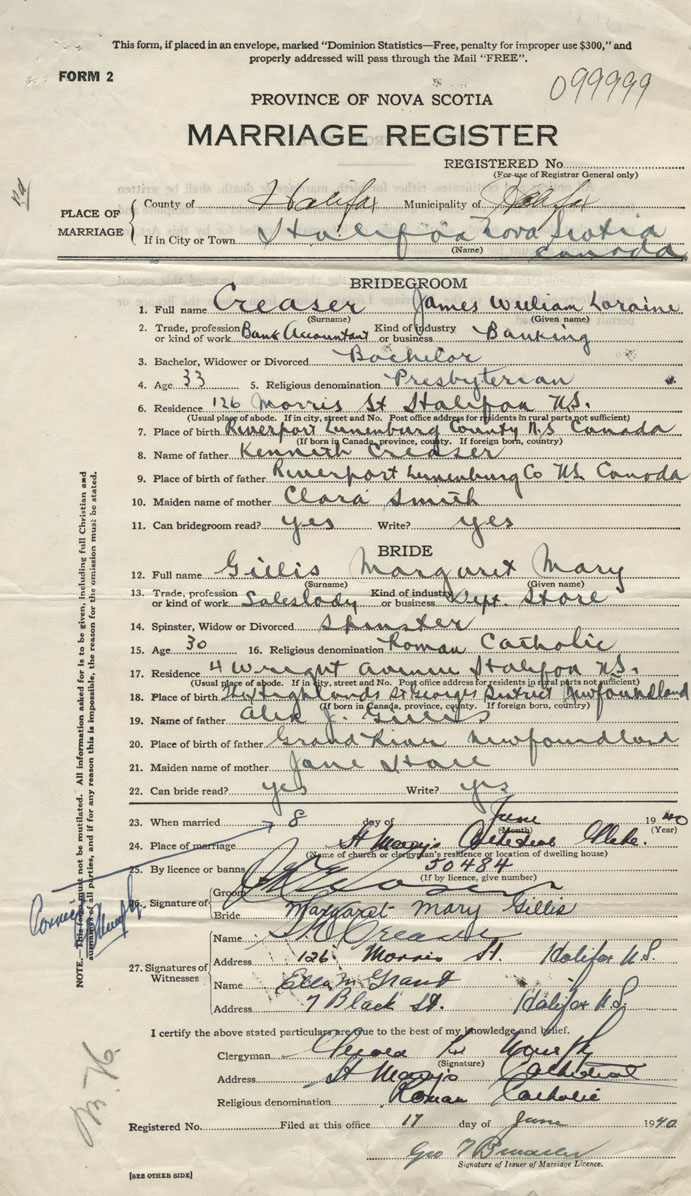 This form, if placed in an envelope, marked "Dominion Statistics—Free, penalty for improper use $300," and
properly addressed will pass through the Mail "FREE".
FORM 2
099999
PROVINCE OF NOVA SCOTIA
MARRIAGE REGISTER
REGISTERED No.
(For use of Registrar General only)
PLACE OF MARRIAGE
County of Halifax Municipality of Halifax
If in City or Town Halifax Nova Scotia
(Name) Canada
BRIDEGROOM
1. Full name Creaser James William Loraine
(Surname) (Given name)
2. Trade, profession or kind of work Bank Accountant Kind of industry or business Banking
3. Bachelor, Widower or Divorced Bachelor
4. Age 33 5. Religious denomination Presbyterian
6. Residence 126 Morris St Halifax N.S.
(Usual place of abode. If in city, street and No. Post office address for residents in rural parts not sufficient)
7. Place of birth Riverport Lunenburg County N.S. Canada
(If born in Canada, province, county. If foreign born, country)
8. Name of father Kenneth Creaser
9. Place of birth of father Riverport Lunenburg Co N.S. Canada
10. Maiden name of mother Clara Smith
11. Can bridegroom read? yes Write? yes
BRIDE
12. Full name Gillis Margaret Mary
(Surname) (Given name)
13. Trade, profession or kind of work Saleslady Kind of industry or business Dept. Store
14. Spinster, Widow or Divorced Spinster
15. Age 30 16. Religious denomination Roman Catholic
17. Residence 4 Wright Avenue Halifax N.S.
(Usual place of abode. If in city, street and No. Post office address for residents in rural parts not sufficient)
18. Place of birth The Highlands St Georges District Newfoundland
(If born in Canada, province, county. If foreign born, country)
19. Name of father Alex J. Gillis
20. Place of birth of father Grand River Newfoundland
21. Maiden name of mother Jane
22. Can bride read? yes Write? yes
23. When married 8 day of June 1940
(Month) (Year)
24. Place of marriage St Mary's Cathedral Glebe.
(Name of church or clergyman's residence or location of dwelling house)
25. By licence or banns 50484
(If by licence, give number)
26. Signature of
Groom Creaser
Bride Margaret Mary Gillis
27. Signatures of Witnesses
Name Creaser
Address 126 Morris St. Halifax N.S.
Name Ella M Grant
Address 7 Black St. Halifax N.S.
I certify the above stated particulars are true to the best of my knowledge and belief.
Clergyman Gerald Murphy
(Signature)
Address St Mary's Cathedral
Religious denomination Roman Catholic
Registered No. Filed at this office 17 day of June 1940.
Geo
Signature of Issuer of Marriage Licence.
[SEE OTHER SIDE]
NOTE.—This form must not be mutilated. All information asked for is to be given, including full Christian and
surnames of all parties, and if for any reason this is impossible, the reason for the omission must be stated.